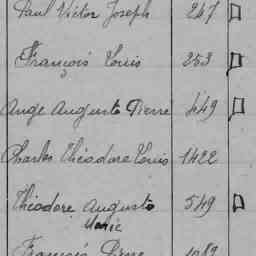 Paul Victor Joseph 247
François Louis 253
Ange Auguste Pierre 449
Charles Théodore Louis 1422
Théodore Auguste 549
Marie
François Pierre 1089